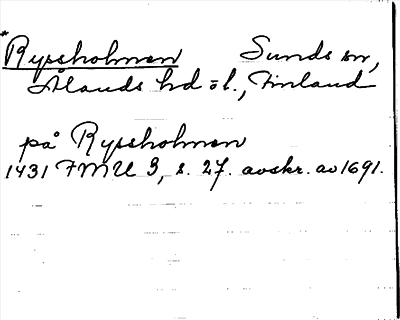 *Ryssholmen Sunds sn,
Ålands hd ö l., Finland
på Ryssholmen
1431 FMU 3, s. 27. avskr. av 1691.